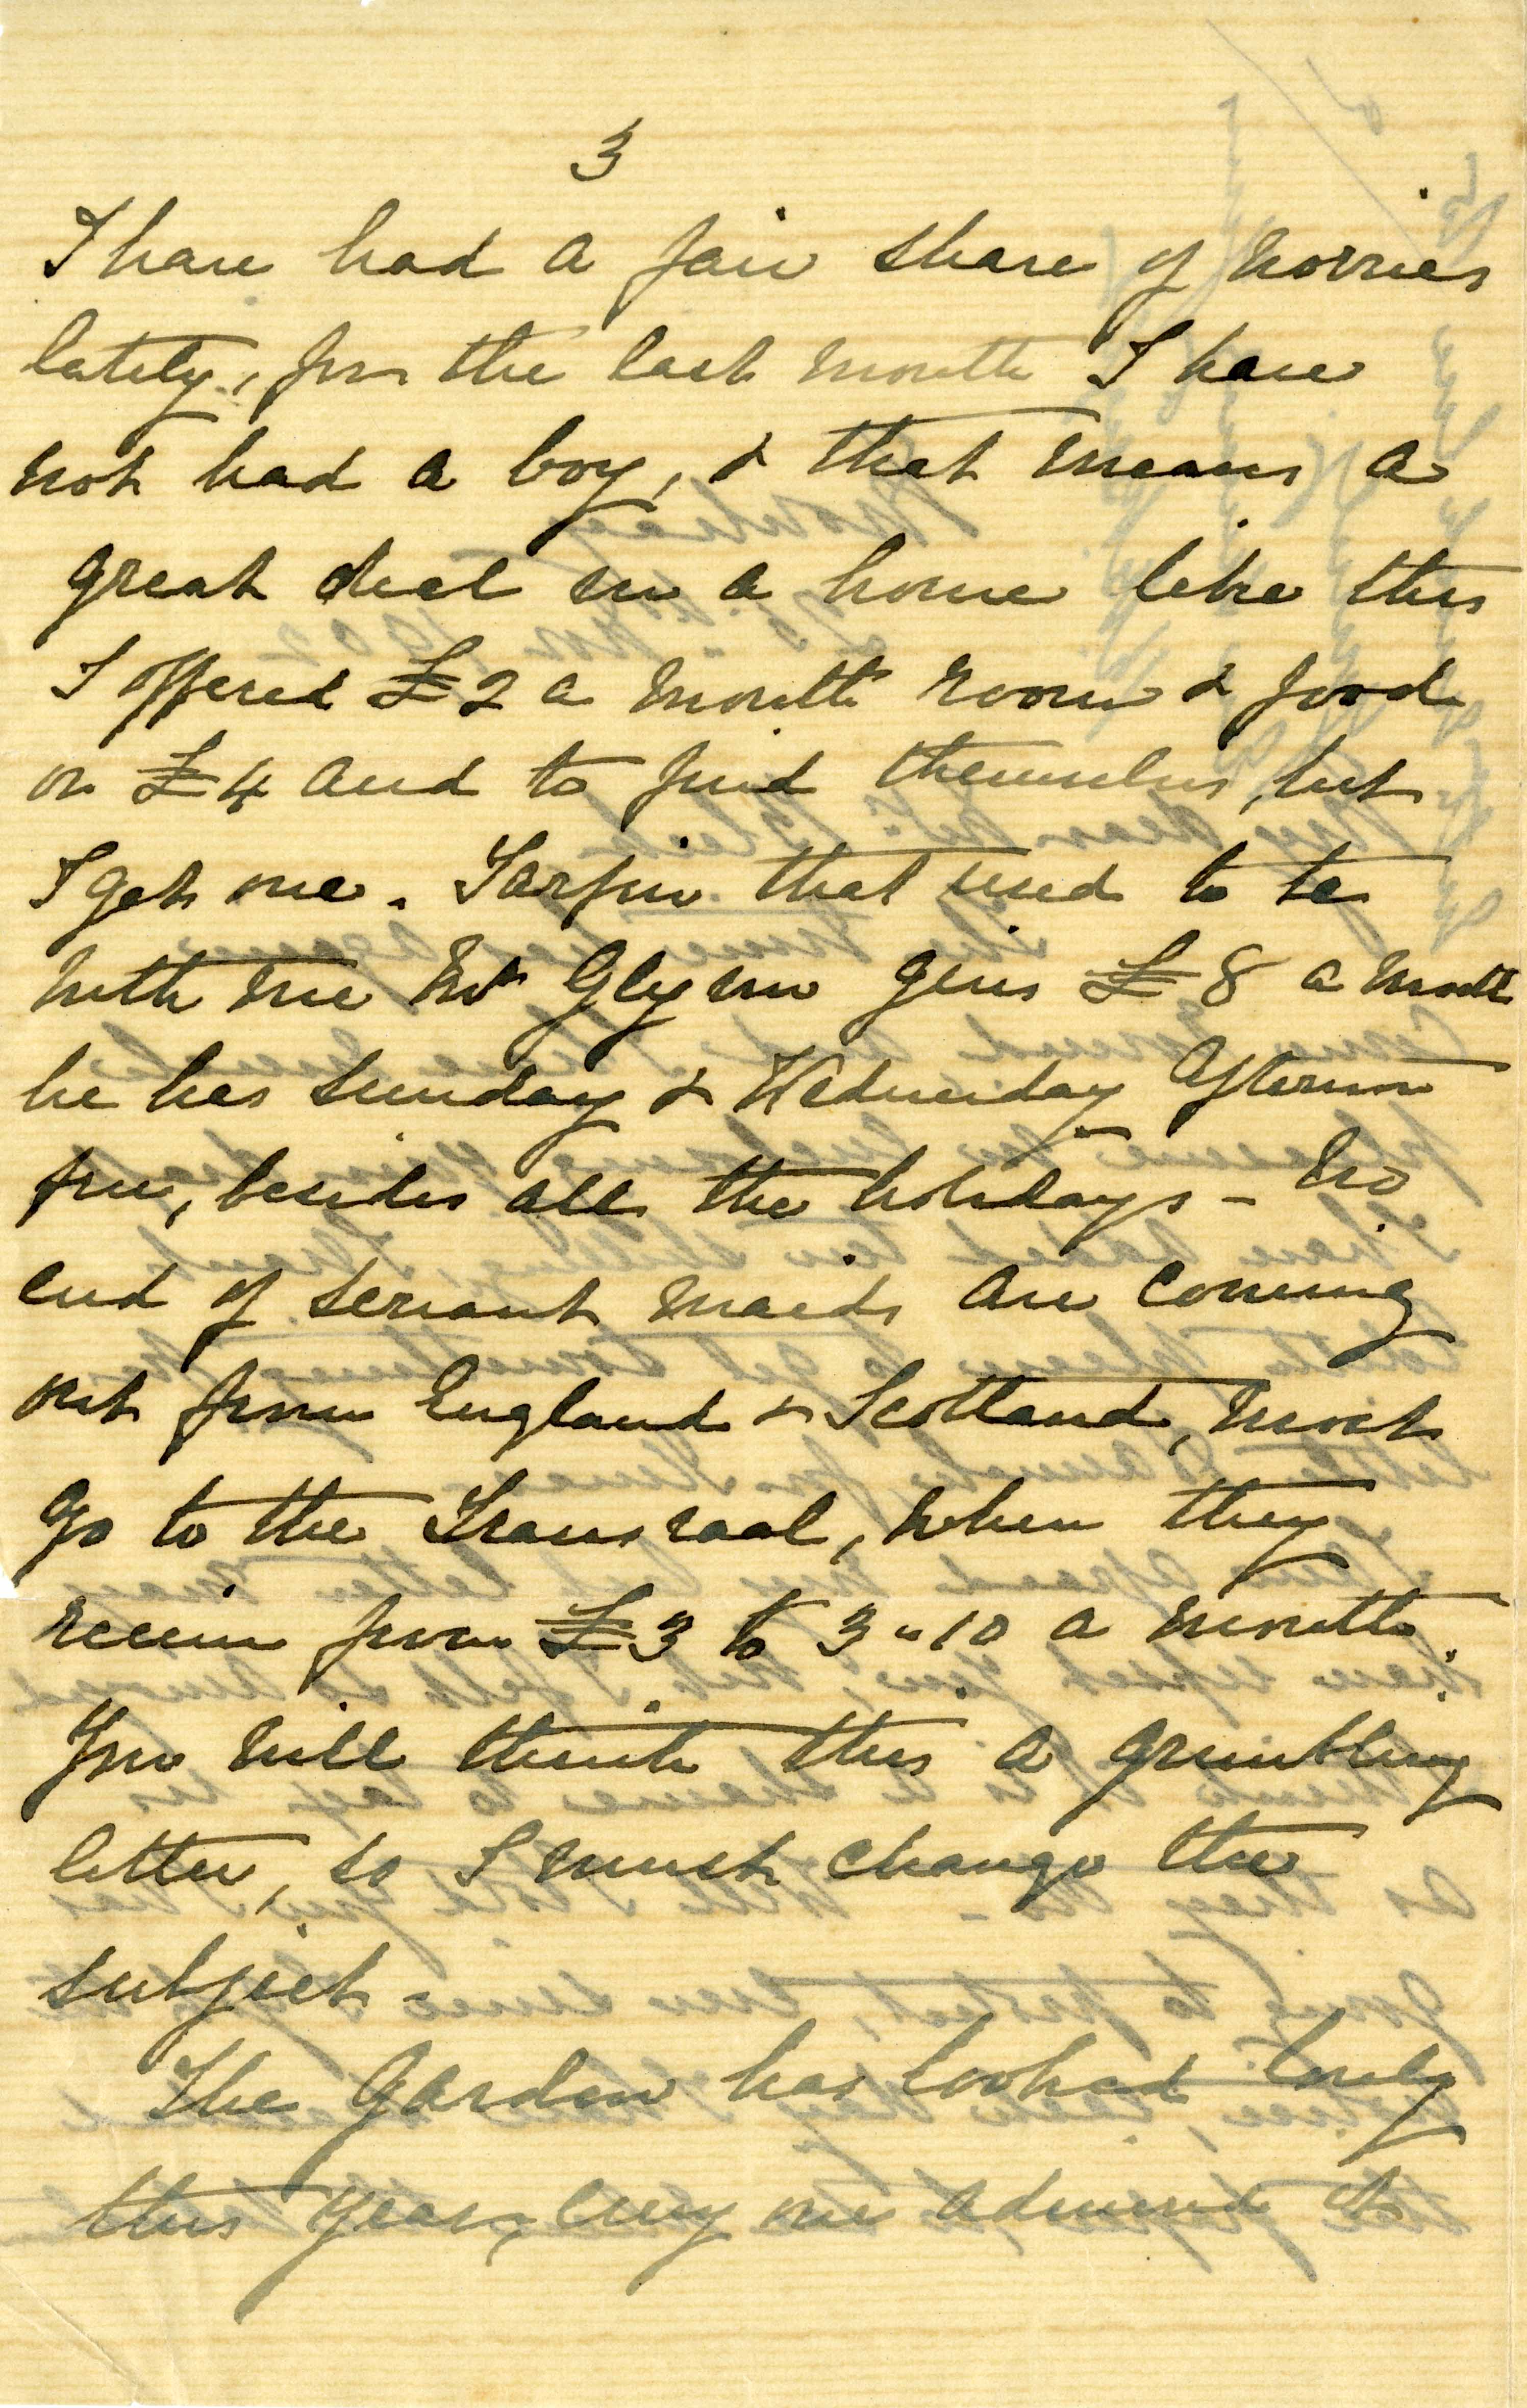 3
I have had a fair share of worries
lately, for the last month I have
not had a boy, & that means a
great deal in a house like this
I offered £2 a month room & food
or £4 and to find themselves, but
I got one. that used to be
with me Mr Glynn gives £8 a month
he has Sunday & Wednesday afternoon
free, besides all the holidays - No
end of servant maids are coming
out from England & Scotland, most
go to the Transvaal, when they
receive from £3 to 3"10 a month.
You will think this a grumbling
letter, so I must change the
subject -
The garden has looked lovely
this year, every one admired it